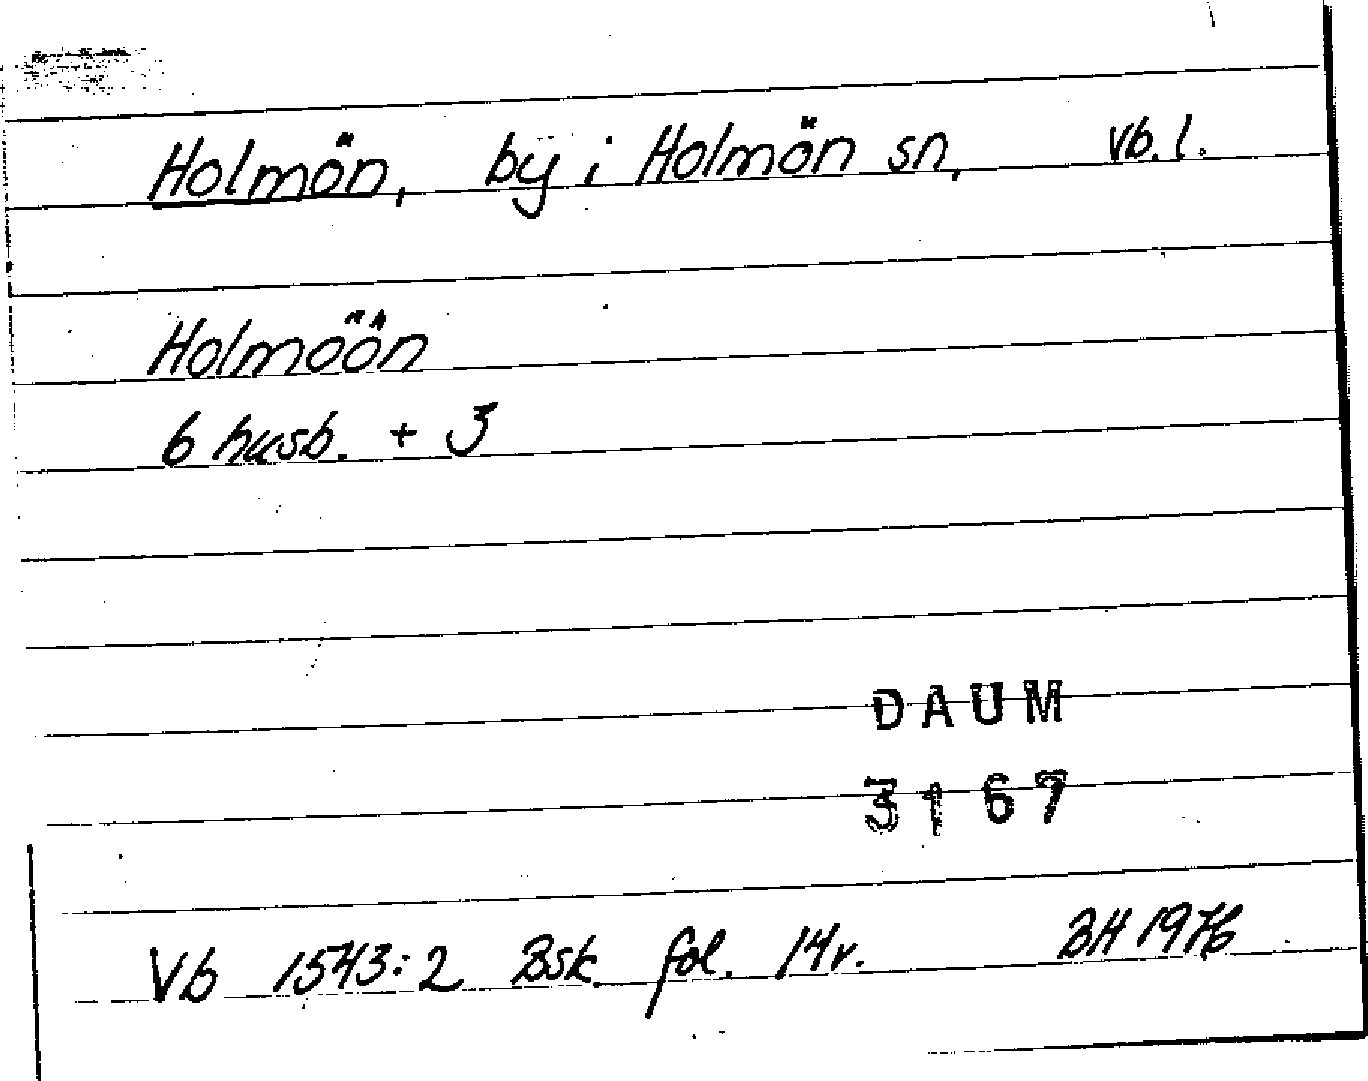 Holmön, by i Holmön sn, Vb. l.
Holmöön
6 husb. + 3
DAUM
3167
Vb 1543:2 Bsk fol. 14v. BH 1976